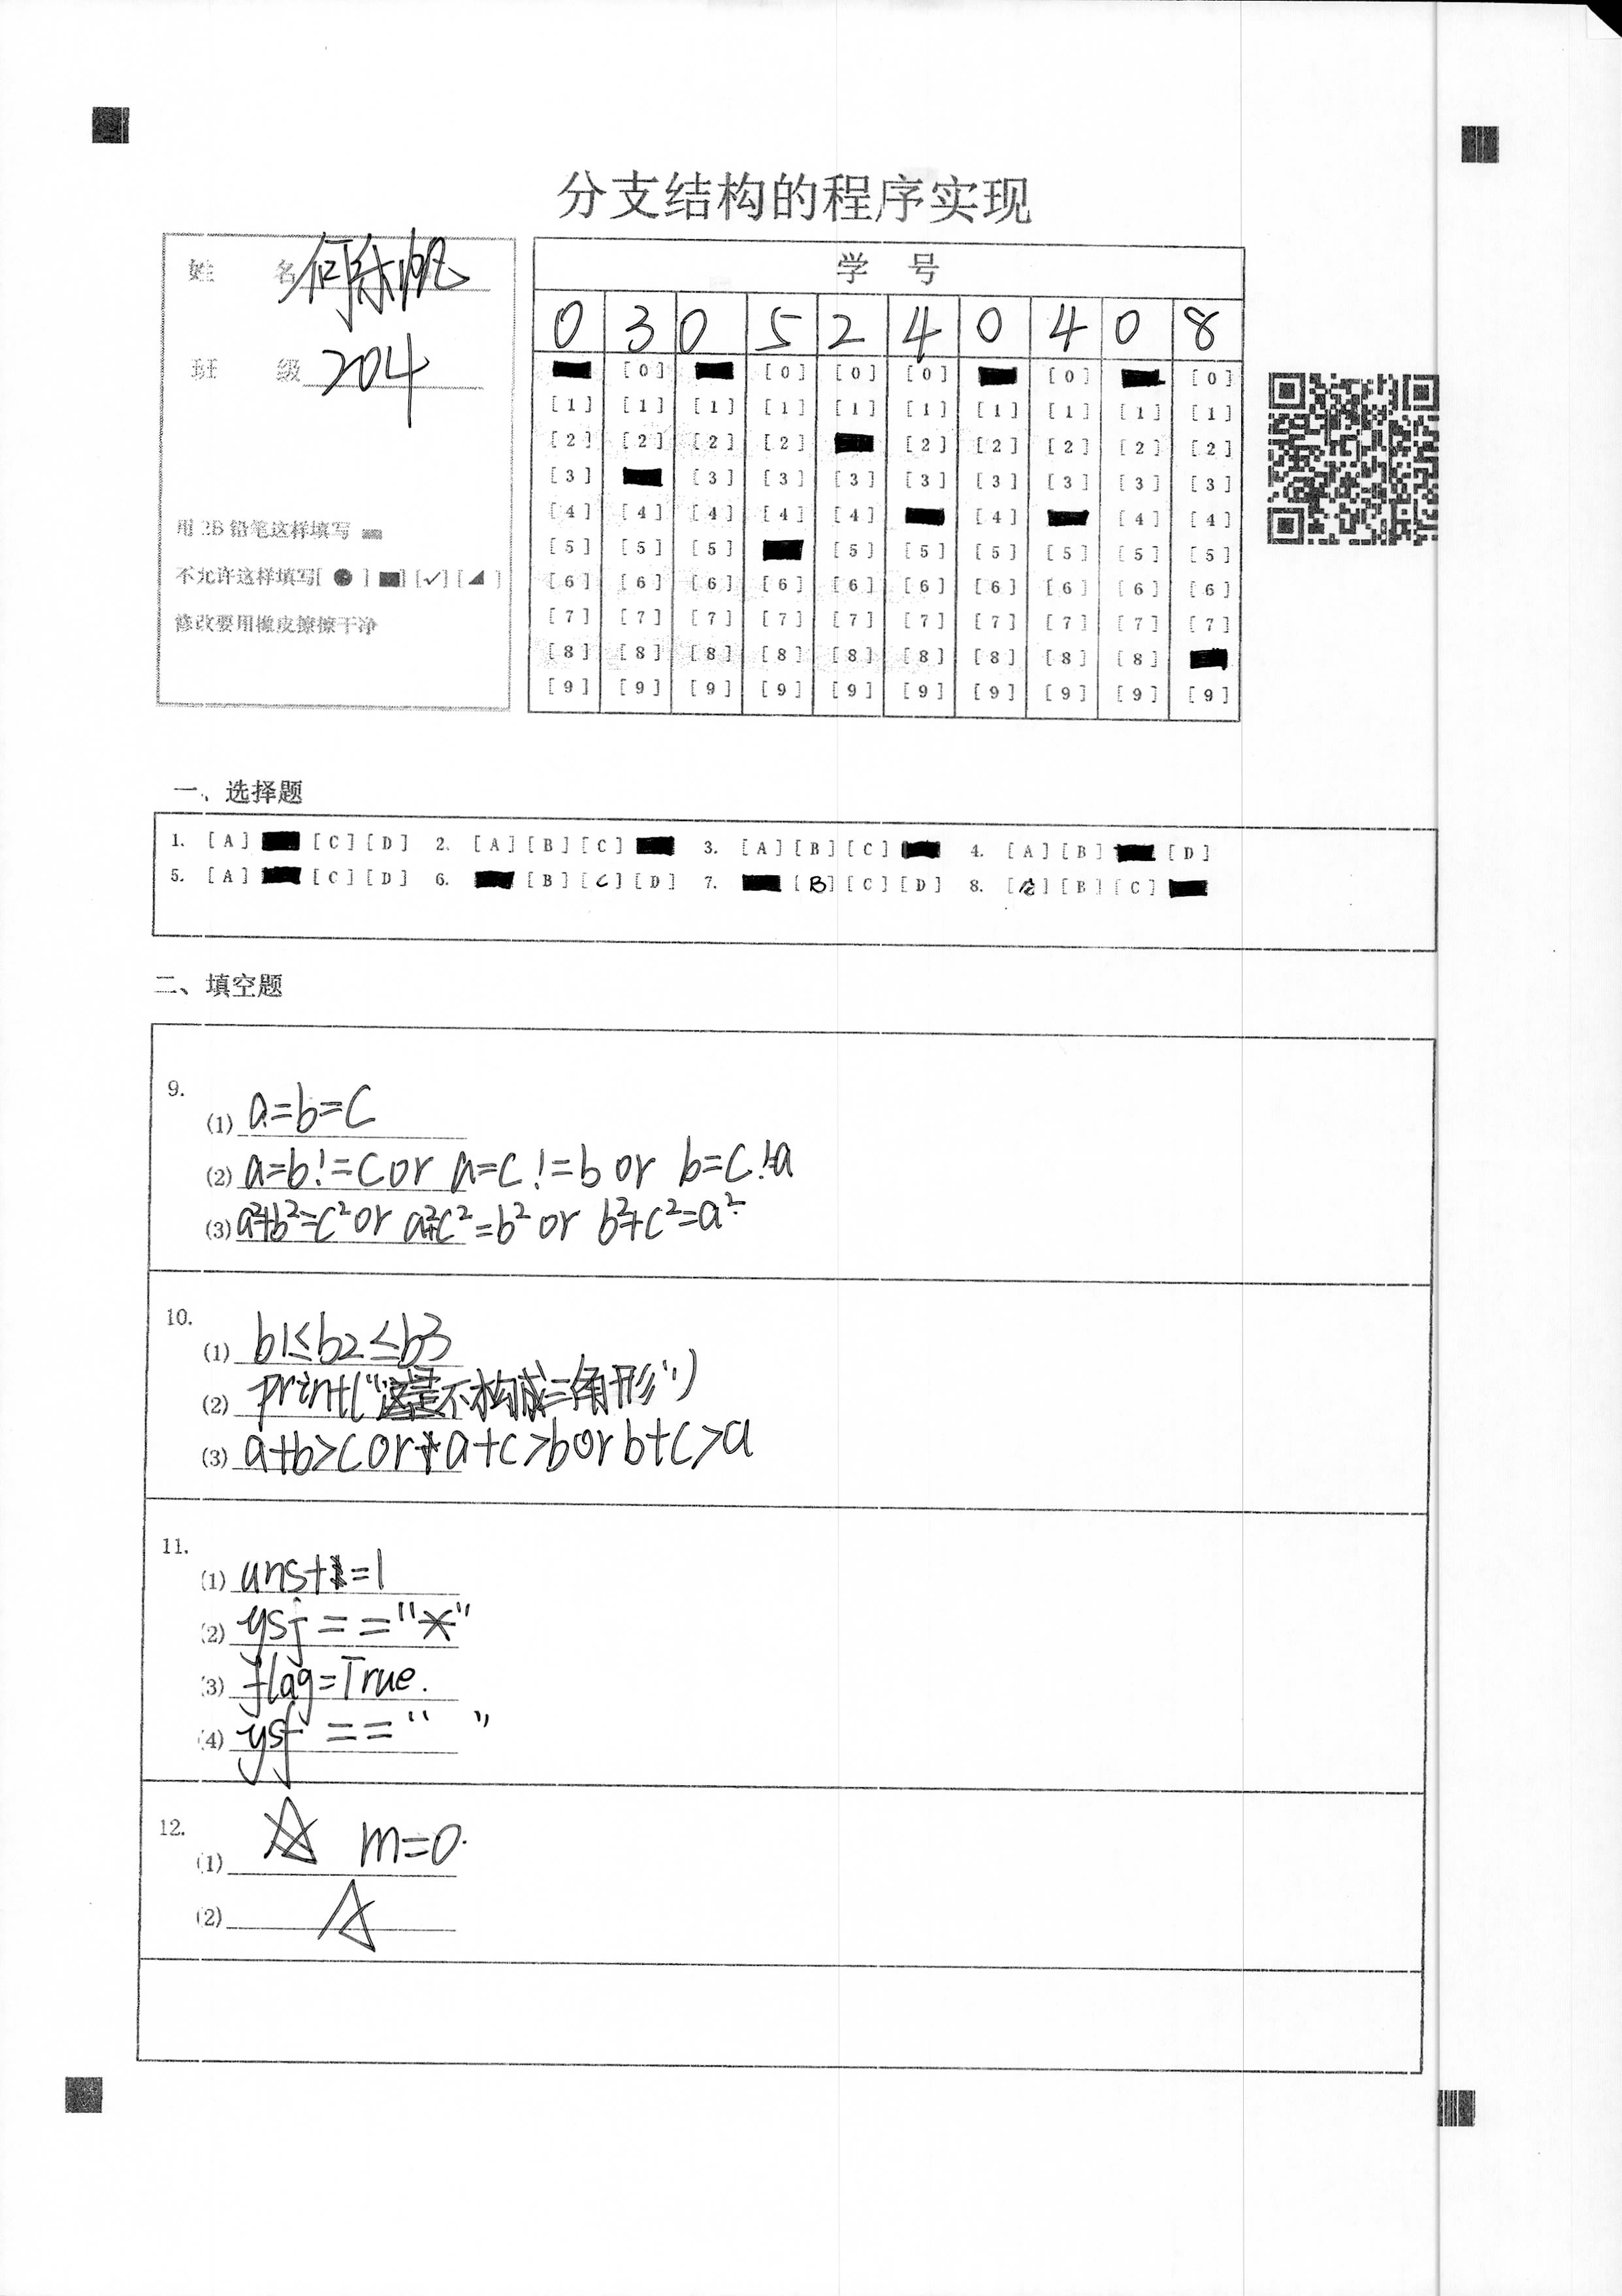 分支结构的程序实现
姓 名 何余帆
班 级 204
用 2B 铅笔这样填写
不允许这样填写[ ● ] [■] [✓] [◢]
修改要用橡皮擦擦干净
学 号
0 3 0 5 2 4 0 4 0 8
[0] [0] [0] [0] [0] [0]
[1] [1] [1] [1] [1] [1] [1] [1] [1] [1]
[2] [2] [2] [2] [2] [2] [2] [2] [2]
[3] [3] [3] [3] [3] [3] [3] [3] [3]
[4] [4] [4] [4] [4] [4] [4] [4]
[5] [5] [5] [5] [5] [5] [5] [5] [5]
[6] [6] [6] [6] [6] [6] [6] [6] [6] [6]
[7] [7] [7] [7] [7] [7] [7] [7] [7] [7]
[8] [8] [8] [8] [8] [8] [8] [8] [8]
[9] [9] [9] [9] [9] [9] [9] [9] [9] [9]
一、选择题
1. [A] [C] [D] 2. [A] [B] [C] 3. [A] [B] [C] 4. [A] [B] [D]
5. [A] [C] [D] 6. [B] [C] [D] 7. [B] [C] [D] 8. [B] [C]
二、填空题
9.
(1) a=b=c
(2) a=b!=c or a=c!=b or b=c!=a
(3) a²+b²=c² or a²+c²=b² or b²+c²=a²
10.
(1) b1≤b2≤b3
(2) print("不构成三角形")
(3) a+b>c or a+c>b or b+c>a
11.
(1) ans+=1
(2) ysj=="*"
(3) flag=True.
(4) ysf ==" "
12.
(1) m=0.
(2)